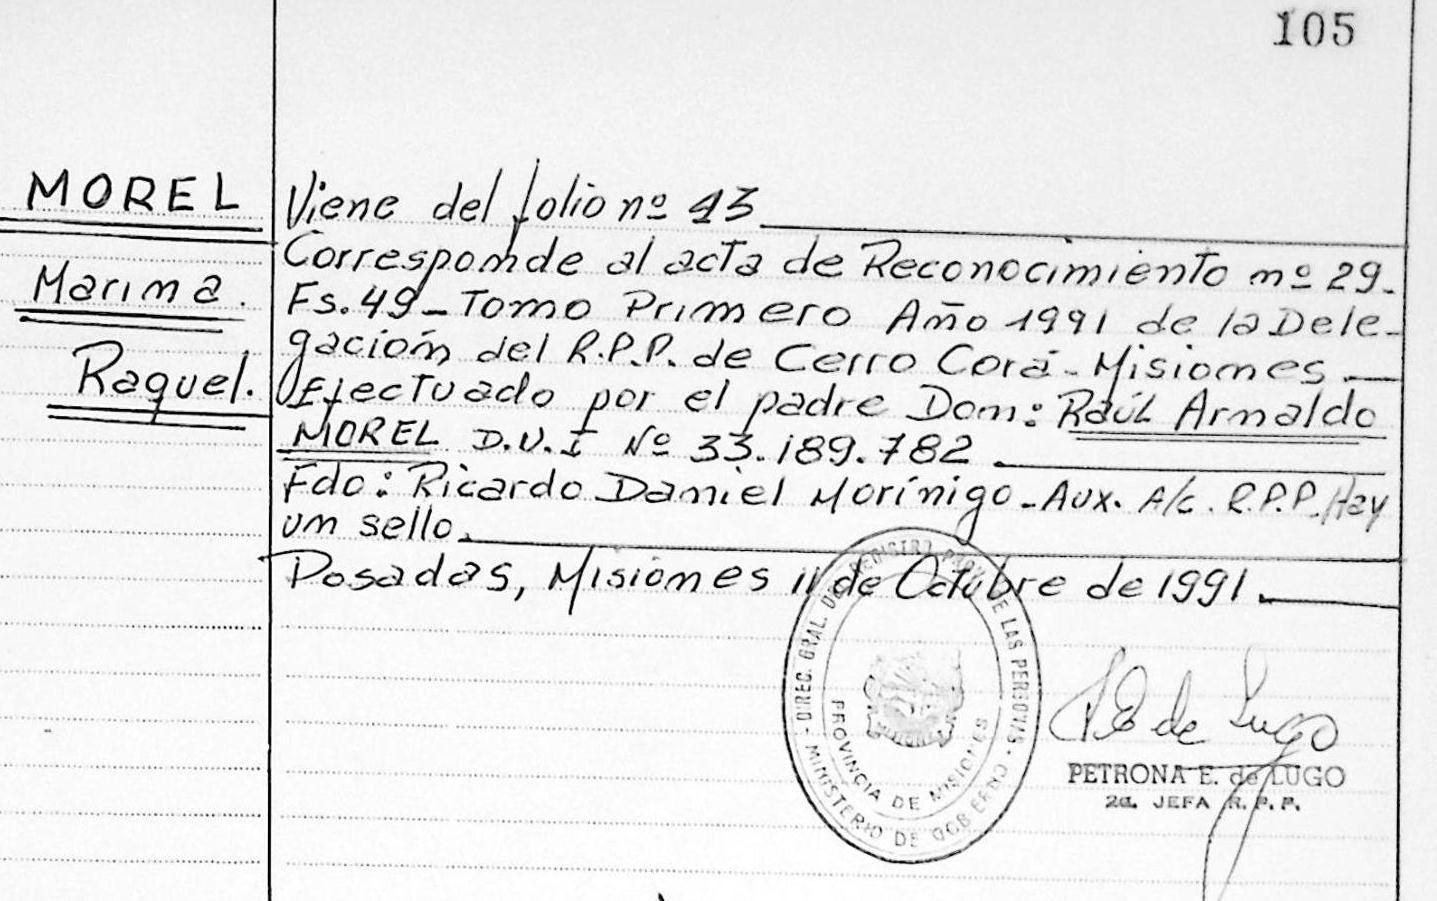 105
MOREL
Marina
Raquel.
Viene del folio nº 43
Corresponde al acta de Reconocimiento nº 29-
Fs. 49 - Tomo Primero Año 1991 de la Dele-
gación del R.P.P. de Cerro Corá - Misiones.
Efectuado por el padre Don: Raúl Arnaldo
MOREL D.N.I Nº 33.189.782
Fdo: Ricardo Daniel Morínigo - Aux. A/c. R.P.P. Hay
un sello.
Posadas, Misiones 11 de Octubre de 1991.
DIREC. GRAL. DEL REGISTRO PROV. DE LAS PERSONAS
PROVINCIA DE MISIONES
MINISTERIO DE GOBIERNO
P E de Lugo
PETRONA E. de LUGO
2a. JEFA R. P. P.